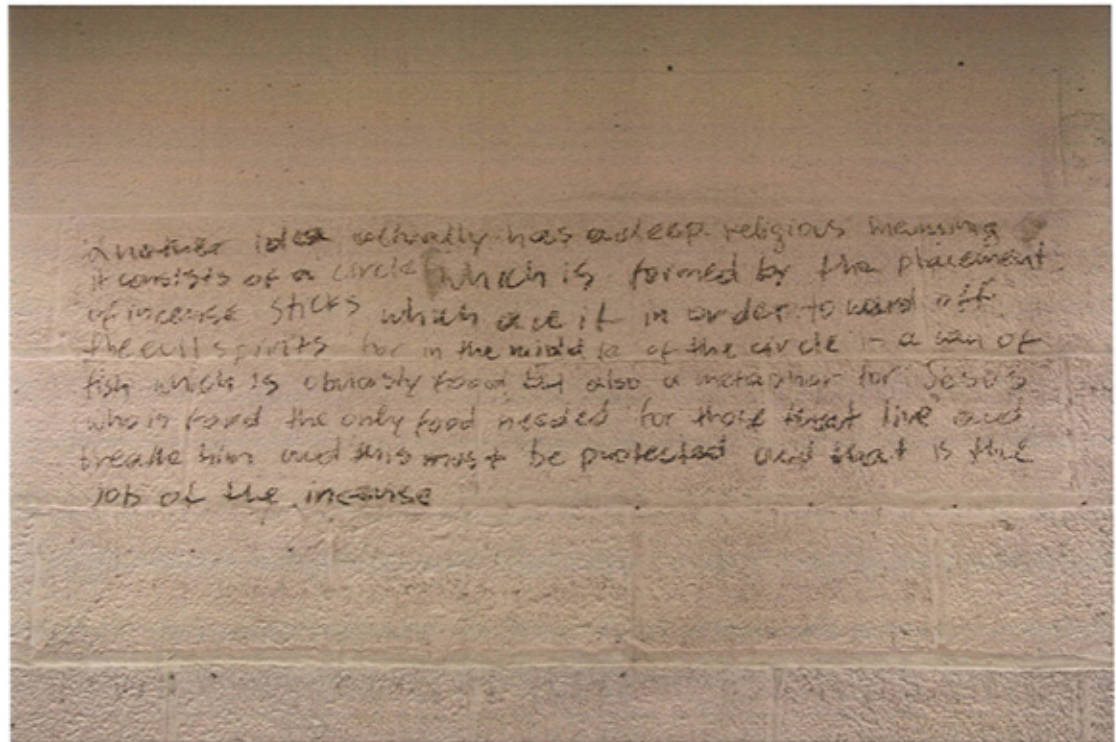 Another idea actually has a deep religious meaning
it consists of a circle which is formed by the placement
of incense sticks which are lit in order to ward off
the evil spirits for in the middle of the circle is a can of
fish which is obviously food but also a metaphor for Jesus
who is food the only food needed for those that live and
breathe him and this must be protected and that is the
job of the incense